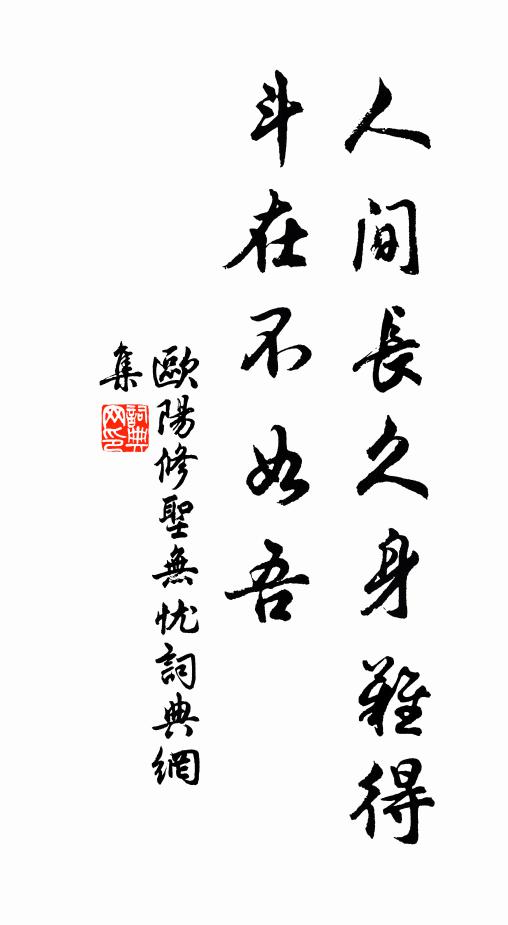 人间長久身難得
斗在不如吾
歐陽修聖無忧詞典網
集
詞典網印